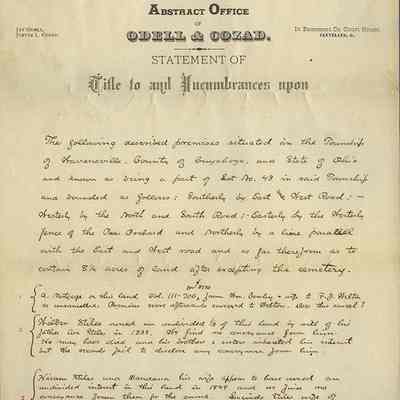 Abstract Office
OF
Jay Odell,
ODELL & COZAD.
In Basement Co. Court House,
CLEVELAND, O.
STATEMENT OF
Title to and Incumbrances upon
The following described premises situated in the Township
of Warrensville, County of Cuyahoga, and State of Ohio
and known as being a part of Lot No. 43 in said Township
and bounded as follows: Southerly by East and West Road:—
Westerly by the North and South Road:— Easterly by the Westerly
fence of the Orchard and Northerly by a line parallel
with the East and West road and so far therefrom as to
contain 8¾ acres of land after excepting the cemetery.
1 A Mortgage on this land Vol. 111-206, from Wm. & wife to
is uncancelled. Premises were afterwards conveyed to
2 Stiles owned an undivided ⅓ of this land by will of his
father Stiles in 1838. We find no conveyance from him.
He may have died and his brother & sisters inherited his interest
but the records fail to disclose any conveyance from him.
3 Hiram Stiles and his wife appear to have owned an
undivided interest in this land in and we find no
conveyance from them for the same. Stiles wife of